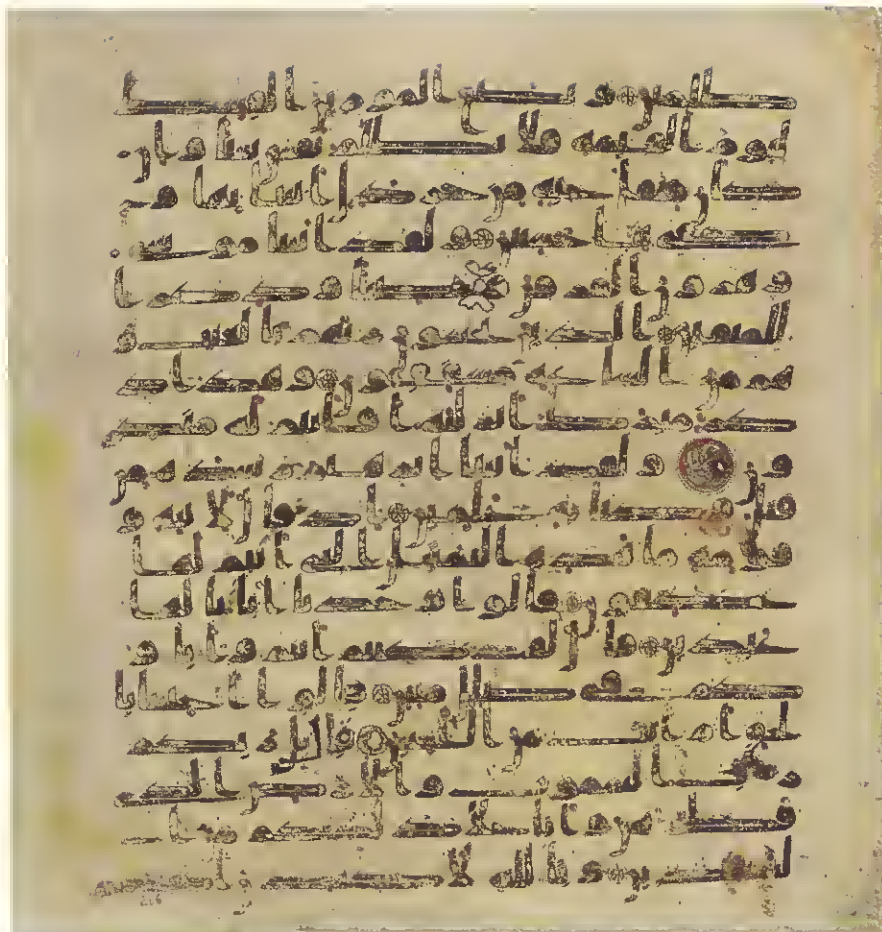 ظلمين ونضع الموزين القسط
ليوم القيمة فلا تظلم نفس شيا وان
كان مثقال حبة من خردل اتينا بها و
كفى بنا حسبين ولقد اتينا موسى
وهرون الفرقن وضيا وذكرا
للمتقين الذين يخشون ربهم بالغيب و
هم من الساعة مشفقون وهذا ذ
كر مبرك انزلنه افانتم له منكر
ون ولقد اتينا ابرهيم رشده من
قبل وكنا به علمين اذ قال لابيه و
قومه ما هذه التماثيل التي انتم لها
عكفون قالوا وجدنا ابانا لها
عبدين قال لقد كنتم انتم واباو
كم في ضلل مبين قالوا اجيتنا با
لحق ام انت من اللعبين قال بل ربكم
رب السموت والارض الذي
فطرهن وانا على ذلكم من ا
لشهدين وتالله لاكيدن اصنمكم